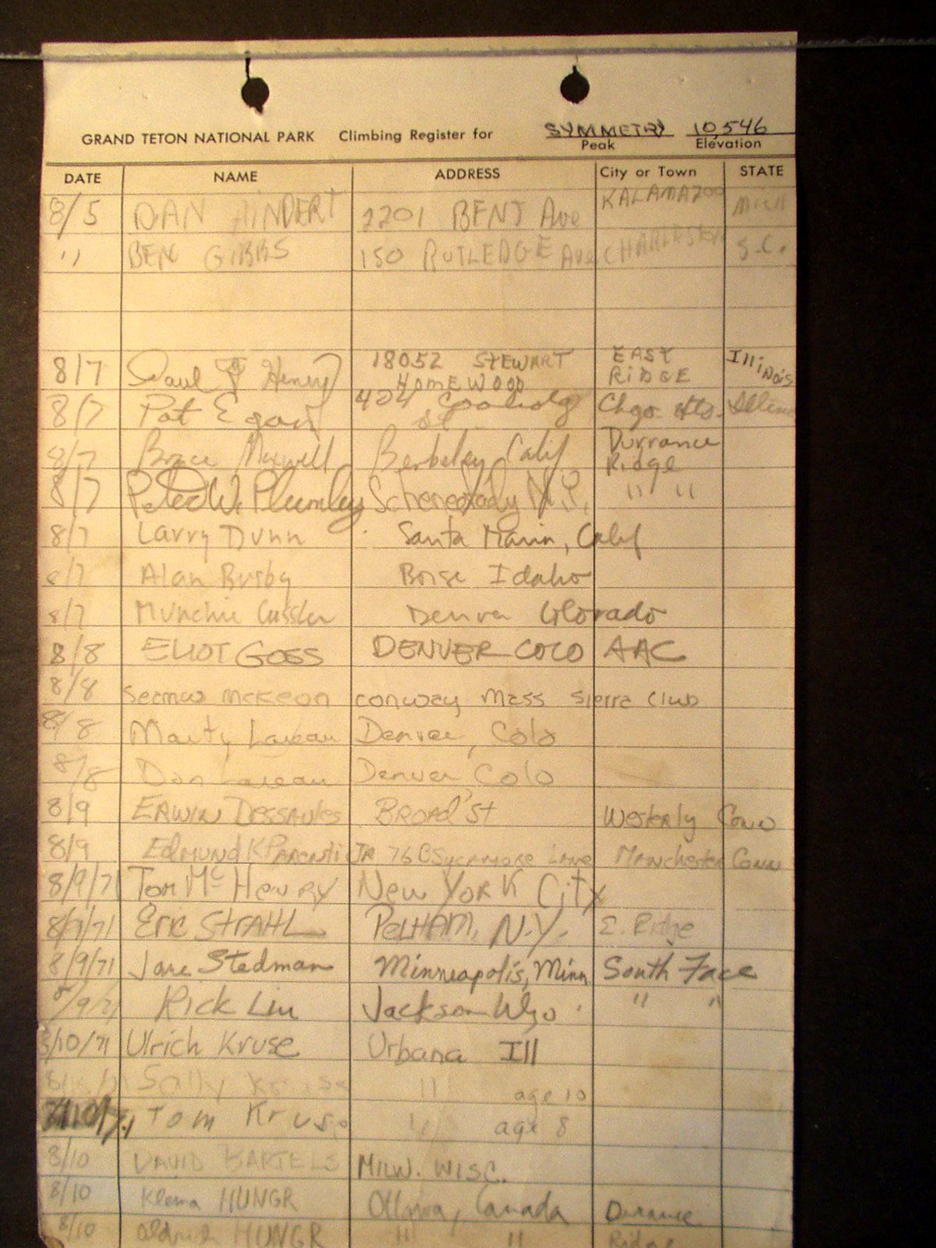 GRAND TETON NATIONAL PARK Climbing Register for SYMMETRY 10,546
Peak Elevation
DATE NAME ADDRESS City or Town STATE
8/5 DAN 2201 BENT Ave KALAMAZOO Mich
" BEN GIBBS 150 RUTLEDGE Ave CHARLESTON S.C.
8/7 Paul F Henry 18052 STEWART HOMEWOOD EAST RIDGE Illinois
8/7 Pat Egan 424 Coolidg St Chgo. Hts. Illinois
8/7 Bruce Maxwell Berkeley Calif Durrance Ridge
8/7 Peter W. Plumley Schenectady N.Y. " "
8/7 Larry Dunn Santa Maria, Calif
8/7 Alan Busby Boise Idaho
8/7 Munchie Denver Colorado
8/8 ELIOT GOSS DENVER COLO AAC
8/8 Seamus McKeon Conway Mass Sierra Club
8/8 Marty Lareau Denver, Colo
8/8 Don Lareau Denver, Colo
8/9 ERWIN DESSAULES BROAD St Westerly Conn
8/9 Edmund K Parenti JR 76 C Sycamore Lane Manchester Conn
8/9/71 Tom McHenry New York City
8/9/71 Eric STRAHL PELHAM, N.Y. E. Ridge
8/9/71 Jane Stedman Minneapolis, Minn South Face
8/9/71 Rick Liu Jackson Wyo " "
8/10/71 Ulrich Kruse Urbana Ill
8/10/71 Sally Kruse " age 10
8/10/71 Tom Kruse " age 8
8/10 DAVID BARTELS MILW. WISC.
8/10 Klema HUNGR Ottawa, Canada Durrance
8/10 Oldrich HUNGR " " Ridge